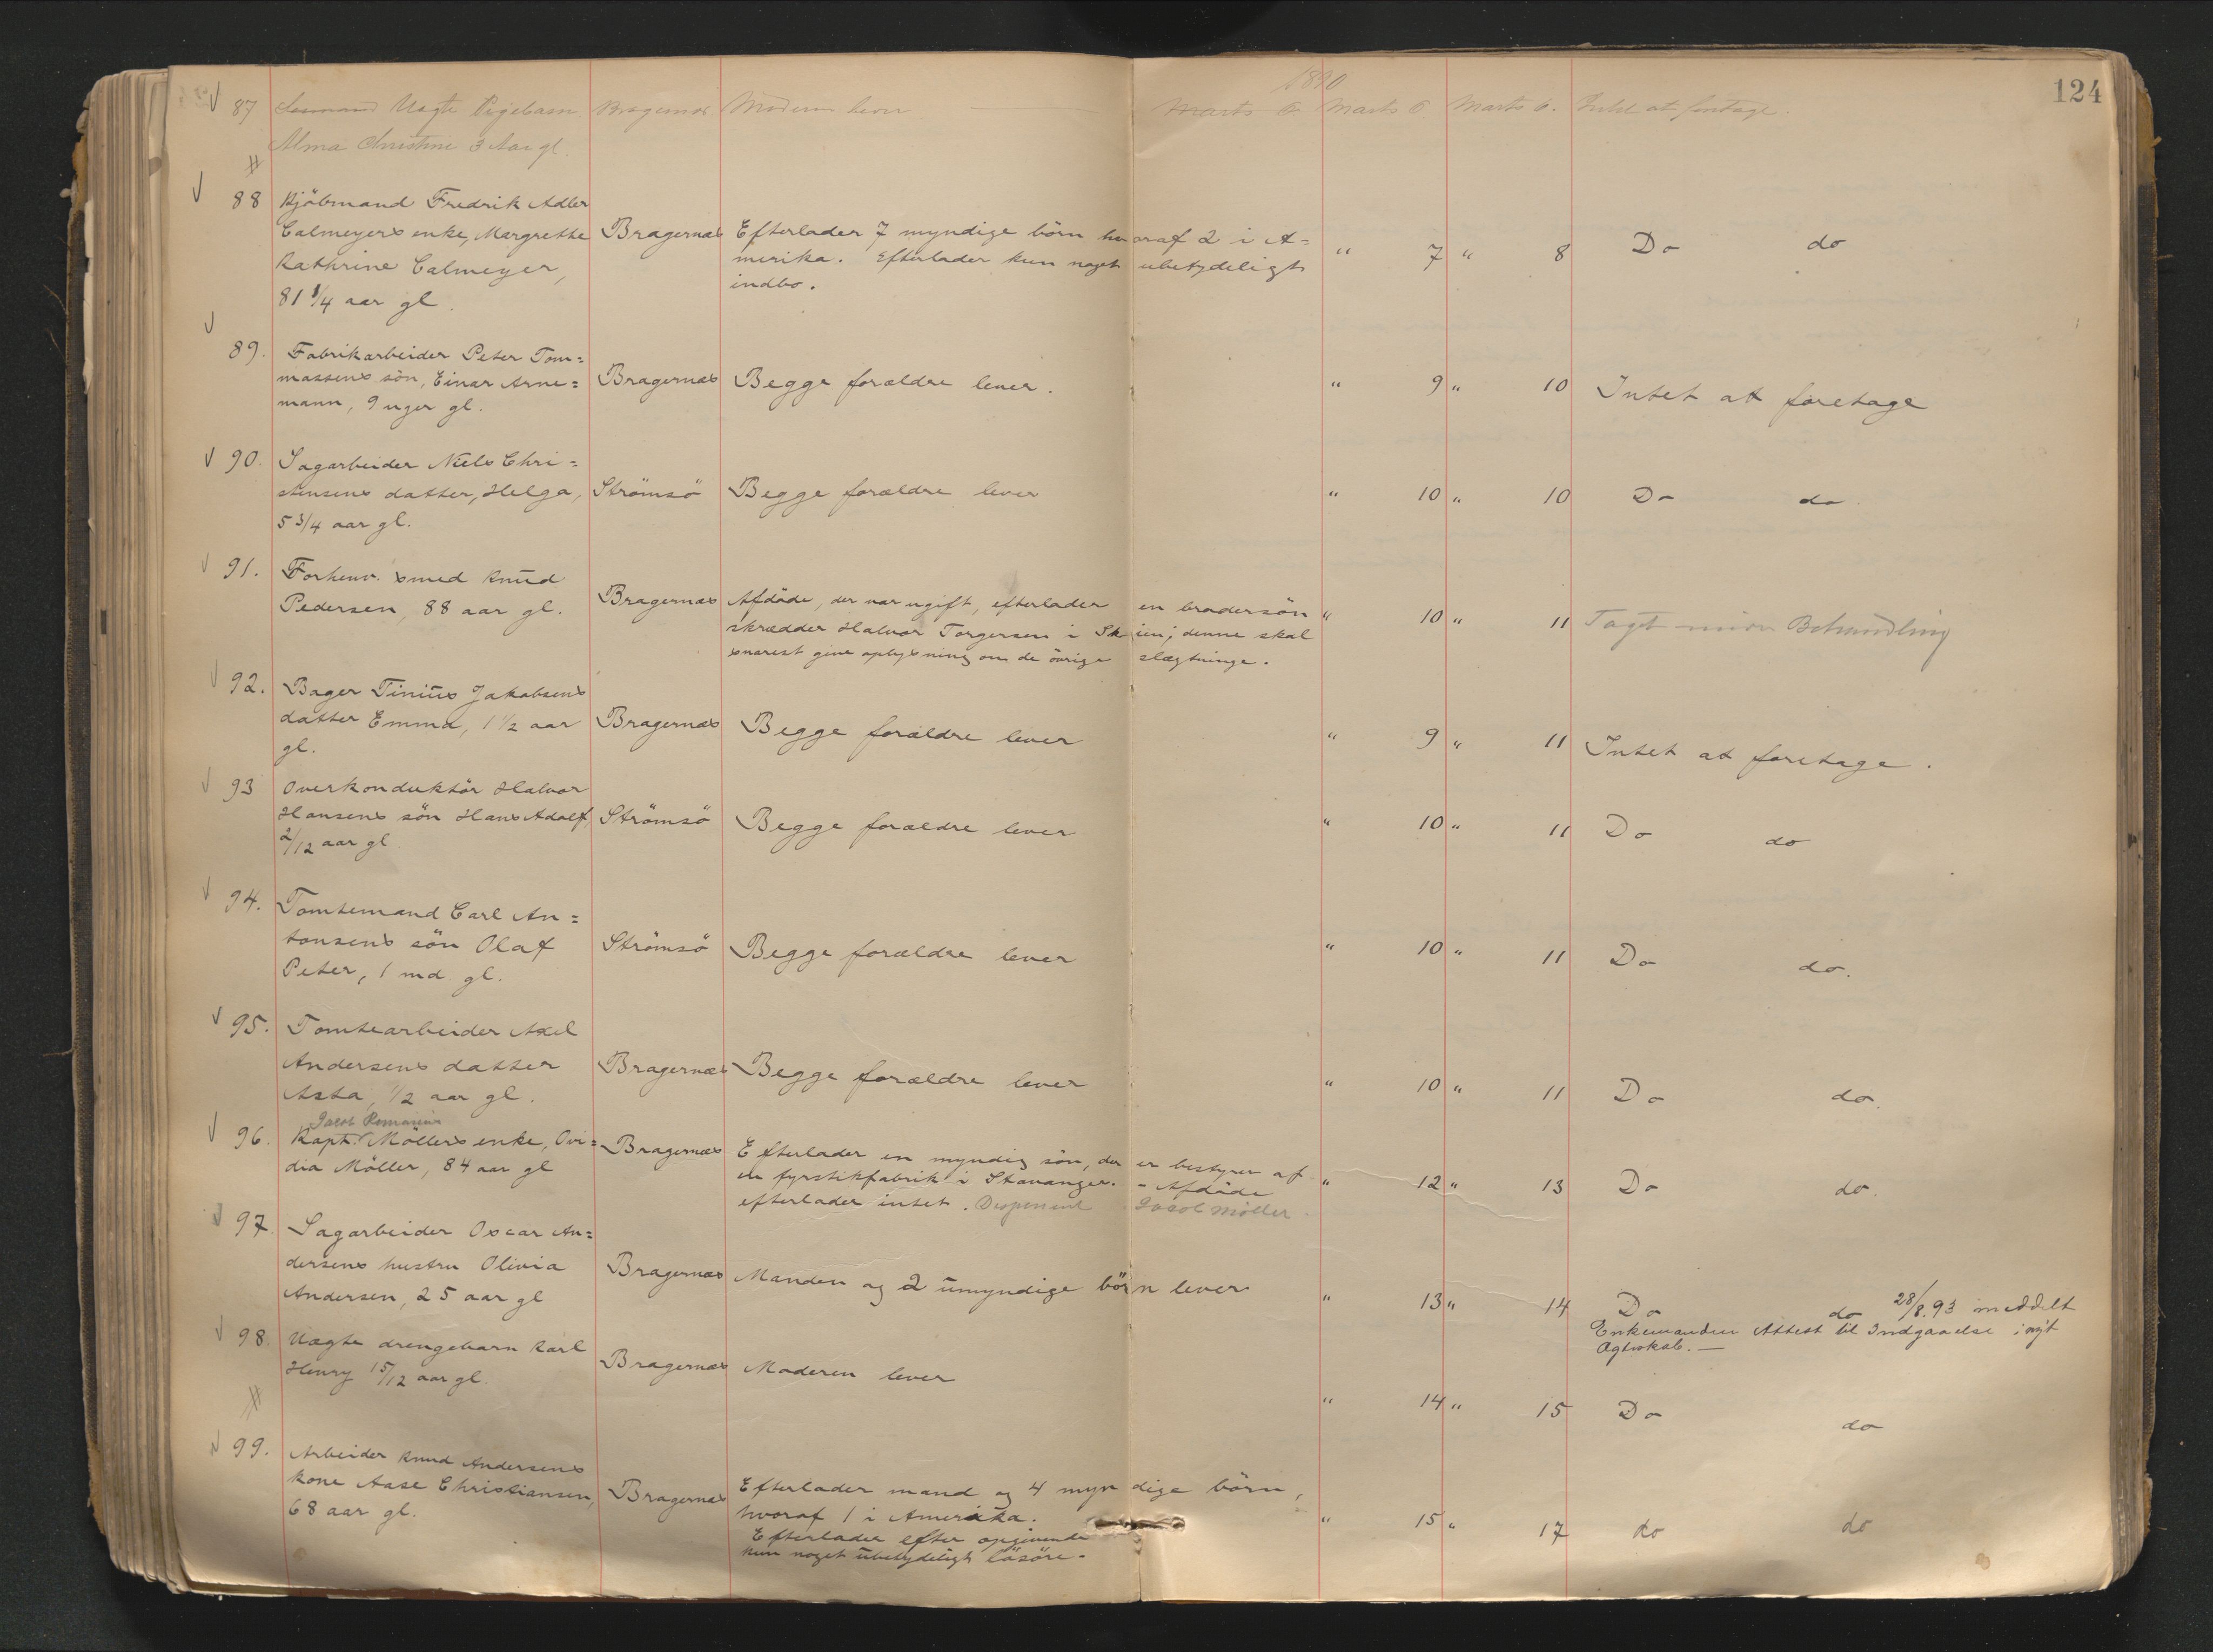 124
1890
87 Uægte Pigebarn Bragernæs Moderen lever Marts 6 Marts 6 Marts 6. Intet at foretage.
Alma Christine 3 Aar gl.
88 Kjöbmand Fredrik Adler
Calmeyers enke, Margrethe Bragernæs Efterlader 7 myndige börn hvoraf 2 i A=
Kathrine Calmeyer, merika. Efterlader kun noget ubetydeligt " 7 " 8 Do do
81 1/4 aar gl. indbo.
89. Fabrikarbeider Peter Tom=
massens sön, Einar Arne= Bragernæs Begge forældre lever. " 9 " 10 Intet at foretage
mann, 9 uger gl.
90. Sagarbeider Niels Chri=
stensens datter, Helga, Strömsö Begge forældre lever " 10 " 10 Do do
5 3/4 aar gl.
91. Forhenv. smed Knud
Pedersen, 88 aar gl. Bragernæs Afdöde, der var ugift, efterlader en brodersön " 10 " 11 Taget under Behandling
skrædder Halvor Torgersen i Skien; denne skal
snarest give oplysning om de övrige slægtninge.
92. Bager Tinius Jakobsens
datter Emma, 1 1/2 aar Bragernæs Begge forældre lever " 9 " 11 Intet at foretage.
gl.
93 Overkonduktör Halvor
Hansens sön Hans Adolf, Strömsö Begge forældre lever " 10 " 11 Do do
2/12 aar gl
94. Tomtemand Carl An=
tonsens sön Olaf Strömsö Begge forældre lever " 10 " 11 Do do.
Peter, 1 md. gl.
95. Tomtearbeider Axel
Andersens datter Bragernæs Begge forældre lever " 10 " 11 Do do.
Asta, 1/2 aar gl.
Jacob
96. Kapt. Möllers enke, Ovi= Bragernæs Efterlader en myndig sön, der er bestyrer af
dia Möller, 84 aar gl en fyrstikfabrik i Stavanger. - Afdöde " 12 " 13 Do do.
efterlader intet. Disponent Jacob Möller.
97. Sagarbeider Oscar An=
dersens hustru Olivia Bragernæs Manden og 2 umyndige börn lever " 13 " 14 Do do 28/8.93 meddelt
Andersen, 25 aar gl Enkemanden Attest til Indgaaelse i nyt
Ægteskab. —
98. Uægte drengebarn Karl
Henry 1 5/12 aar gl. Bragernæs Moderen lever " 14 " 15 Do do
99. Arbeider Knud Andersens
kone Aase Christiansen, Bragernæs Efterlader mand og 4 myndige börn,
68 aar gl. hvoraf 1 i Amerika. " 15 " 17 do do
Efterlader efter opgivende
kun noget ubetydeligt lösöre.